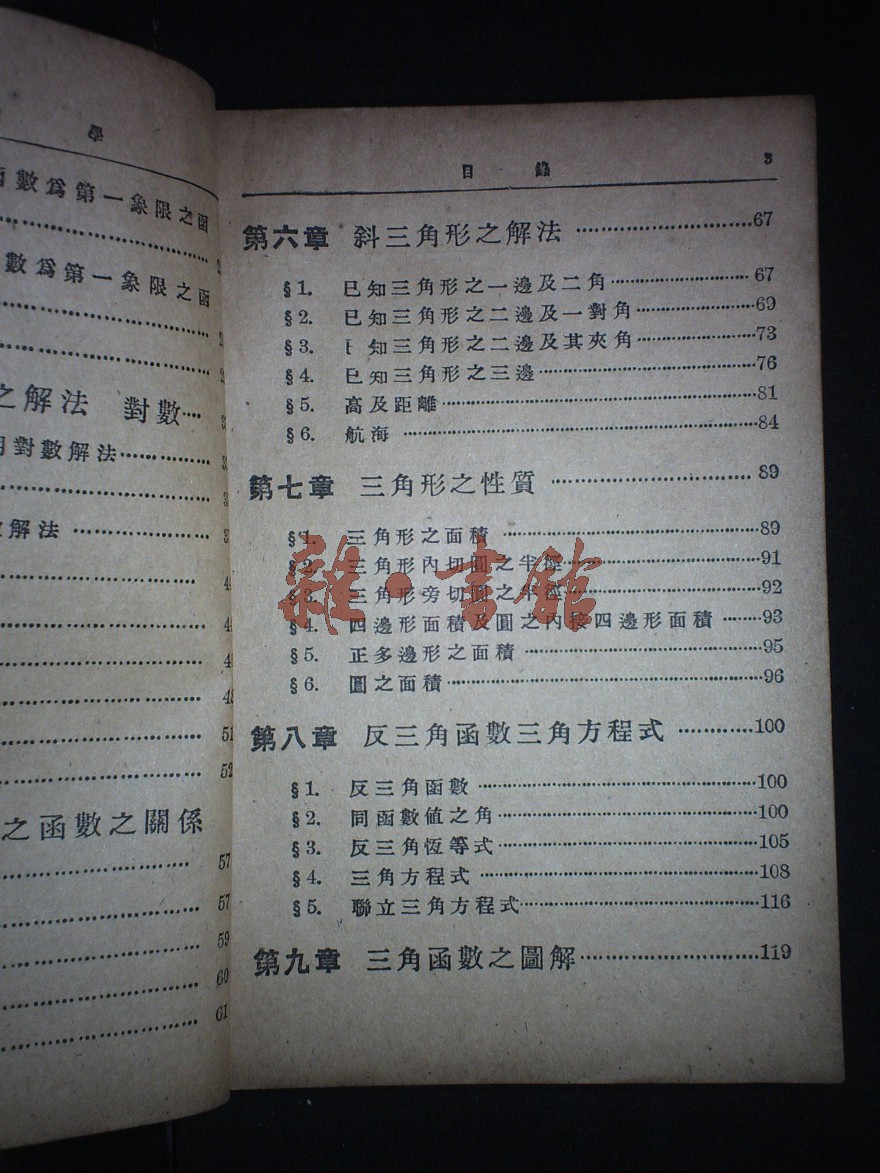 學
數爲第一象限之函
數爲第一象限之函
之解法 對數…
用對數解法
解法
48
51
52
之函數之關係
57
57
59
60
61
目錄 3
第六章 斜三角形之解法 …………67
§1. 已知三角形之一邊及二角 …………67
§2. 已知三角形之二邊及一對角 …………69
§3. 知三角形之二邊及其夾角 …………73
§4. 已知三角形之三邊 …………76
§5. 高及距離 …………81
§6. 航海 …………84
第七章 三角形之性質 …………89
§1. 三角形之面積 …………89
§2. 三角形內切圓之半徑 …………91
§3. 三角形旁切圓之半徑 …………92
§4. 四邊形面積及圓之內接四邊形面積 ……93
§5. 正多邊形之面積 …………95
§6. 圓之面積 …………96
第八章 反三角函數三角方程式 …………100
§1. 反三角函數 …………100
§2. 同函數值之角 …………100
§3. 反三角恆等式 …………105
§4. 三角方程式 …………108
§5. 聯立三角方程式 …………116
第九章 三角函數之圖解 …………119
雜·書館